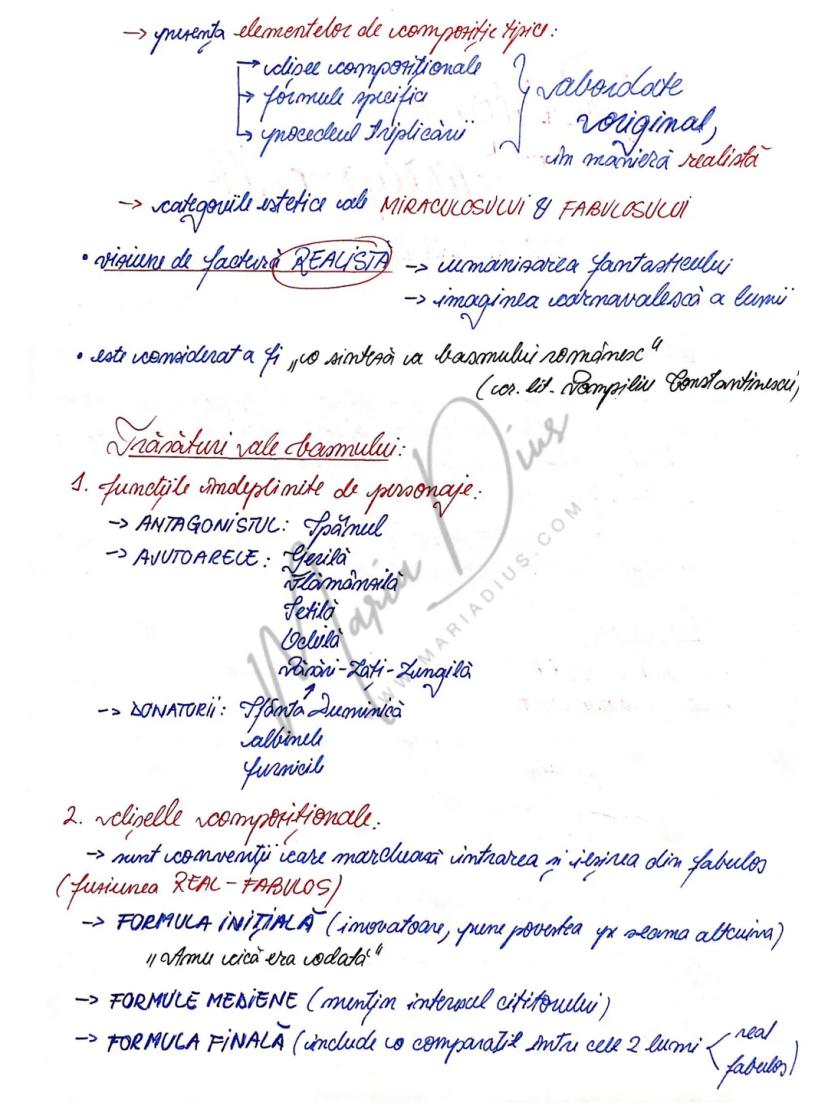 → prezența elementelor de compoziție tipice:
→ clișee compoziționale
→ formule specifice
→ procedeul triplicării
abordate
original,
în manieră realistă
→ categoriile estetice ale MIRACULOSULUI & FABULOSULUI
• viziune de factură REALISTĂ → umanizarea fantasticului
→ imaginea carnavalescă a lumii
• este considerat a fi „o sinteză a basmului românesc"
(cr. lit. Pompiliu Constantinescu)
Trăsături ale basmului:
1. funcțiile îndeplinite de personaje:
→ ANTAGONISTUL: Spânul
→ AJUTOARELE: Gerilă
Flămânzilă
Setilă
Ochilă
Păsări-Lăți-Lungilă
→ DONATORII: Sfânta Duminică
albinele
furnicile
2. clișeele compoziționale:
→ sunt convenții care marchează intrarea și ieșirea din fabulos
(fuziunea REAL-FABULOS)
→ FORMULA INIȚIALĂ (inovatoare, pune povestea pe seama altcuiva)
„Amu cică era odată"
→ FORMULE MEDIENE (mențin interesul cititorului)
→ FORMULA FINALĂ (include o comparație între cele 2 lumi real
fabulos)
Maria Dius
WWW.MARIADIUS.COM